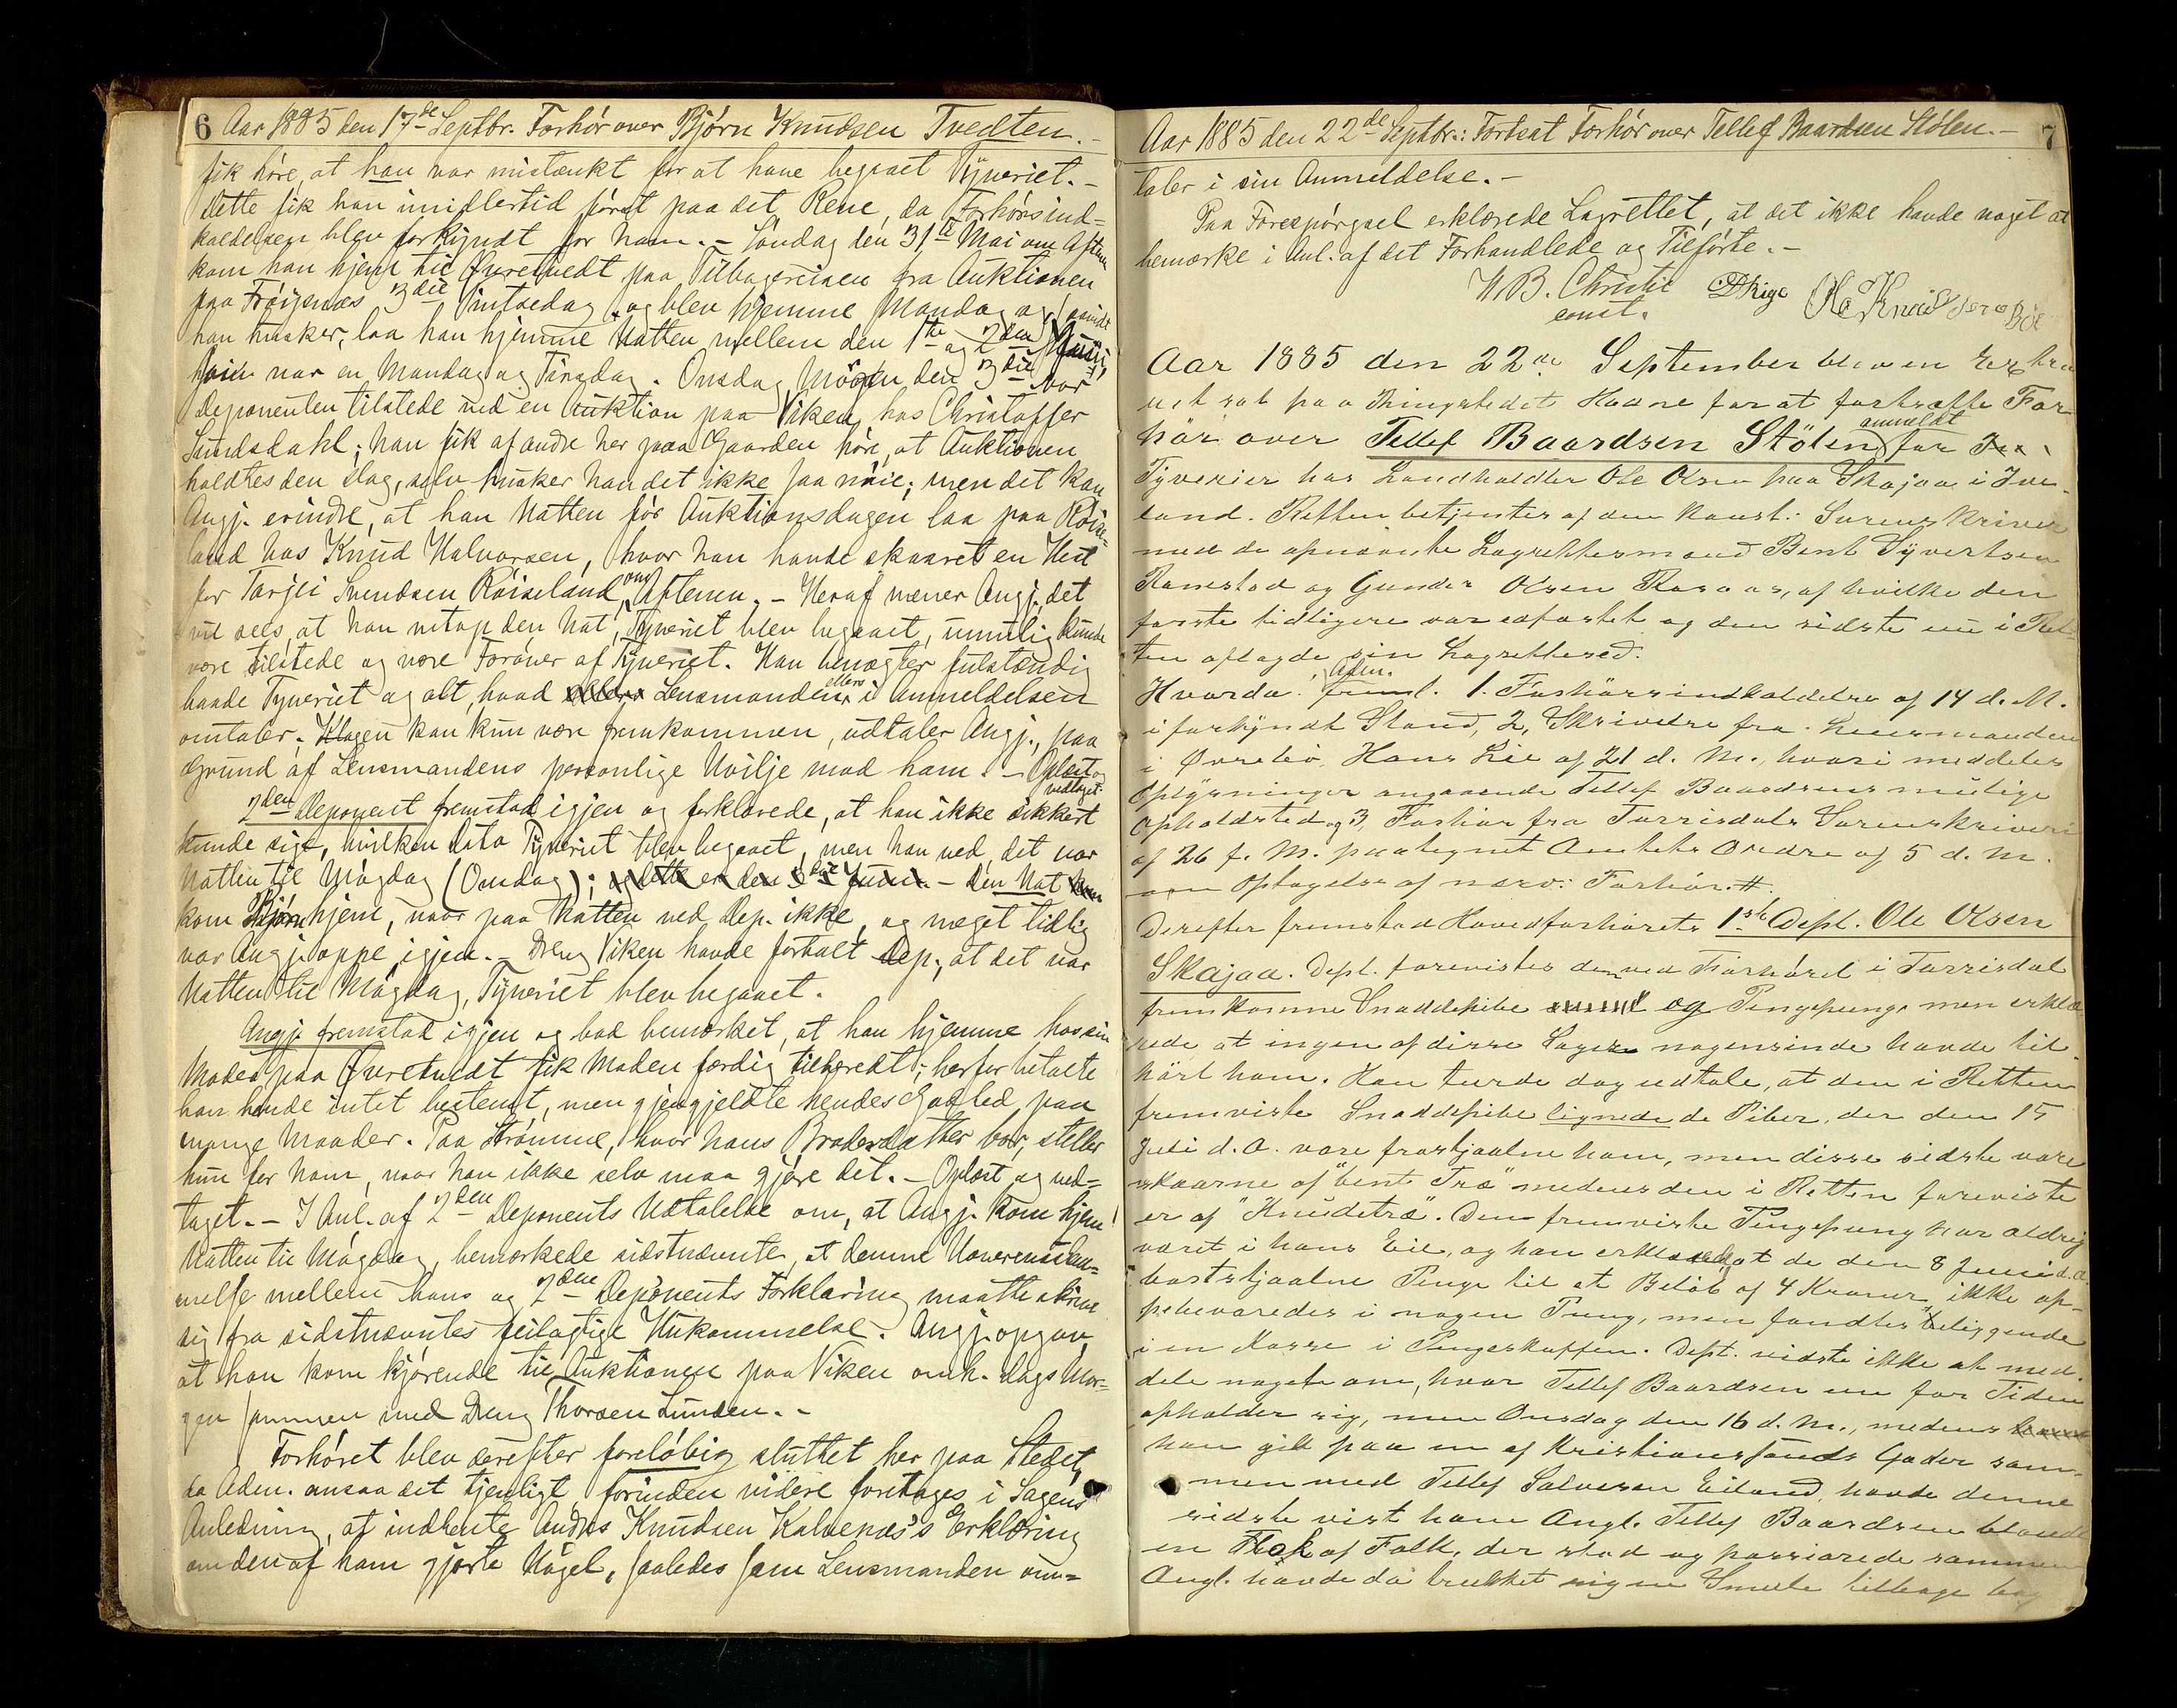 6 Aar 1885 den 17de Septbr. Forhør over Bjørn Knudsen Tvedten.-
fik høre, at han var mistænkt for at have begaaet Tyveriet.-
Dette fik han imidlertid først paa det Rene, da Forhørsind-
kaldelsen blev forkyndt for ham.- Søndag den 31te Mai om Aften
kom han hjem til Øvretvedt paa Tilbagereisen fra Auktionen
paa Frøisnæs 3die Pintsedag og blev hjemme Mandag og, saavidt
han husker, laa han hjemme Natten mellem den 1te og 2den Juni,
hvilke var en Mandag og Tirsdag. Onsdag Morgen den 3die var
Deponenten tilstede ved en Auktion paa Viken hos Christoffer
Sundsdahl; han fik af andre her paa Gaarden høre, at Auktionen
holdtes den Dag, selv husker han det ikke saa nøie; men det kan
Angj. erindre, at han Natten før Auktionsdagen laa paa Røise-
land hos Knud Halvorsen, hvor han havde skaaret en Hest
for Tarjei Svendsen Røiseland om Aftenen.- Heraf mener Angj. det
vil sees, at han netop den Nat, Tyveriet blev begaaet, umulig kunde
være tilstede og være Forøver af Tyveriet. Han benægter fulstændig
baade Tyveriet og alt, hvad Lensmanden ellers i Anmeldelsen
omtaler. Klagen kan kun være fremkommen, udtaler Angj., paa
Grund af Lensmandens personlige Uvilje mod ham.- Oplæst og
vedtaget.
2den Deponent fremstod igjen og forklarede, at han ikke sikkert
kunde sige, hvilken Dato Tyveriet blev begaaet, men han ved, det var
Natten til Mögdag (Onsdag); og dette er den 3die Juni.- Den Nat
kom Bjørn hjem, naar paa Natten ved Dep. ikke, og meget tidlig
var Angj. oppe igjen.- Dreng Viken havde fortalt Dep., at det var
Natten til Mögdag, Tyveriet blev begaaet.
Angj. fremstod igjen og bad bemærket, at han hjemme hos sin
Moder paa Øvretvedt fik Maden færdig tilberedt; herfor betalte
han hende intet bestemt, men gjengjeldte hendes Godhed paa
mange Maader. Paa Strømme, hvor hans Broderdatter bor, steller
hun for ham, naar han ikke selv maa gjøre det.- Oplæst og ved-
taget.- I Anl. af 2den Deponents Udtalelse om, at Angj. kom hjem
Natten til Mögdag, bemærkede sidstnævnte, at denne Uoverensstem-
melse mellem hans og 2den Deponents Forklaring maatte skrive
sig fra sidstnævntes feilagtige Hukommelse. Angj. opgav,
at han kom kjørende til Auktionen paa Viken omh. Dags Mor-
gen sammen med Dreng Thorsen Lunden.-
Forhøret blev derefter foreløbig sluttet her paa Stedet,
da Adm. ansaa det tjenligt, forinden videre foretages i Sagens
Anledning, at indhente Anders Knudsen Kalvenæs's Erklæring
om den af ham gjorte Nøgel, saaledes som Lensmanden om-
Aar 1885 den 22de Septbr.: Fortsat Forhør over Tellef Baardsen Stølen.- 7
taler i sin Anmeldelse.-
Paa Forespørgsel erklærede Lagrettet, at det ikke havde noget at
bemærke i Anl. af det Forhandlede og Tilførte.-
W. B. Christie
const.
Aar 1885 den 22de September blev en Extra
ret sat paa Thingstedet Hodne for at fortsætte For-
hør over Tellef Baardsen Stölen anmeldt for
Tyverier hos Landhandler Ole Olsen paa Skajaa i Ive-
land. Retten betjentes af den Konst. Sorenskriver
med de opnævnte Lagrettesmænd Bent Syvertsen
Ramstad og Gunder Olsen Rosaas, af hvilke den
første tidligere var edfæstet og den sidste nu i Ret-
ten aflagde sin Lagretteed.
Hvorda Adm. freml. 1. Forhørsindkaldelse af 14 d. M.
i forkyndt Stand, 2, Skrivelse fra Lensmanden
i Øvrebø Hans Lie af 21 d. M., hvori meddeles
Oplysninger angaaende Tellef Baardsens mulige
Opholdsted og 3, Forhør fra Torrisdals Sorenskriveri
af 26 f. M. paategnet Amtets Ordre af 5 d. M.
om Optagelse af nærv. Forhør. #.
Derefter fremstod Hovedforhørets 1ste Dept. Ole Olsen
Skajaa. Dept. forevistes den ved Forhøret i Torrisdal
fremkomne Snaddepibe og Pengepung, men erklæ-
rede at ingen af disse Sager nogensinde havde til-
hørt ham. Han turde dog udtale, at den i Retten
fremviste Snaddepibe lignede de Piber, der den 15
Juli d. A. vare frastjaalne ham, men disse sidste vare
skaarne af "bent Træ" medens den i Retten foreviste
er af "Knudetræ". Den fremviste Pengepung har aldrig
været i hans Eie, og han erklærede at de den 8 Juni d. A.
bortstjaalne Penge til et Beløb af 4 Kroner ikke op-
bevaredes i nogen Pung, men fandtes beliggende
i en Kasse i Pengeskuffen. Dept. vidste ikke at med-
dele noget om, hvor Tellef Baardsen nu for Tiden
opholder sig, men Onsdag den 16 d. M., medens
han gik paa en af Kristianssands Gader sam-
men med Tellef Salvesen Eiland, havde denne
sidste vist ham Angl. Tellef Baardsen blandt
en Flok af Folk, der stod og passiarede sammen
Angl. havde da trukket sig en Smule tilbage bag